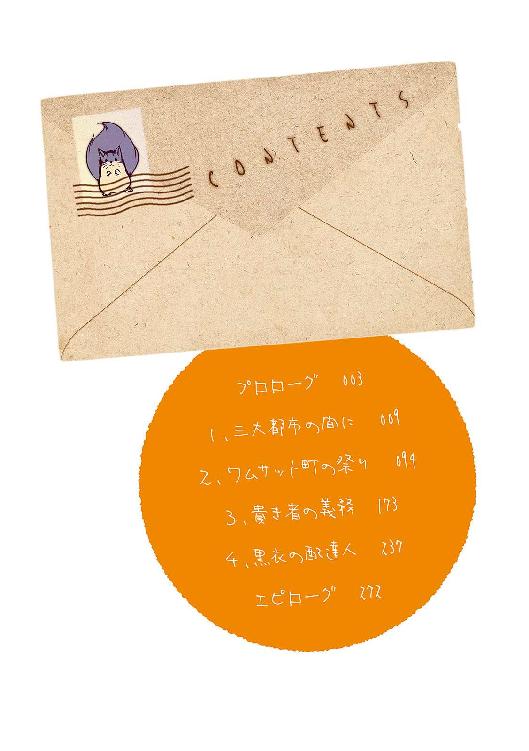 CONTENTS
プロローグ 003
1、三大都市の間に 009
2、ワムサット町の祭り 094
3、貴き者の義務 173
4、黒衣の配達人 237
エピローグ 272